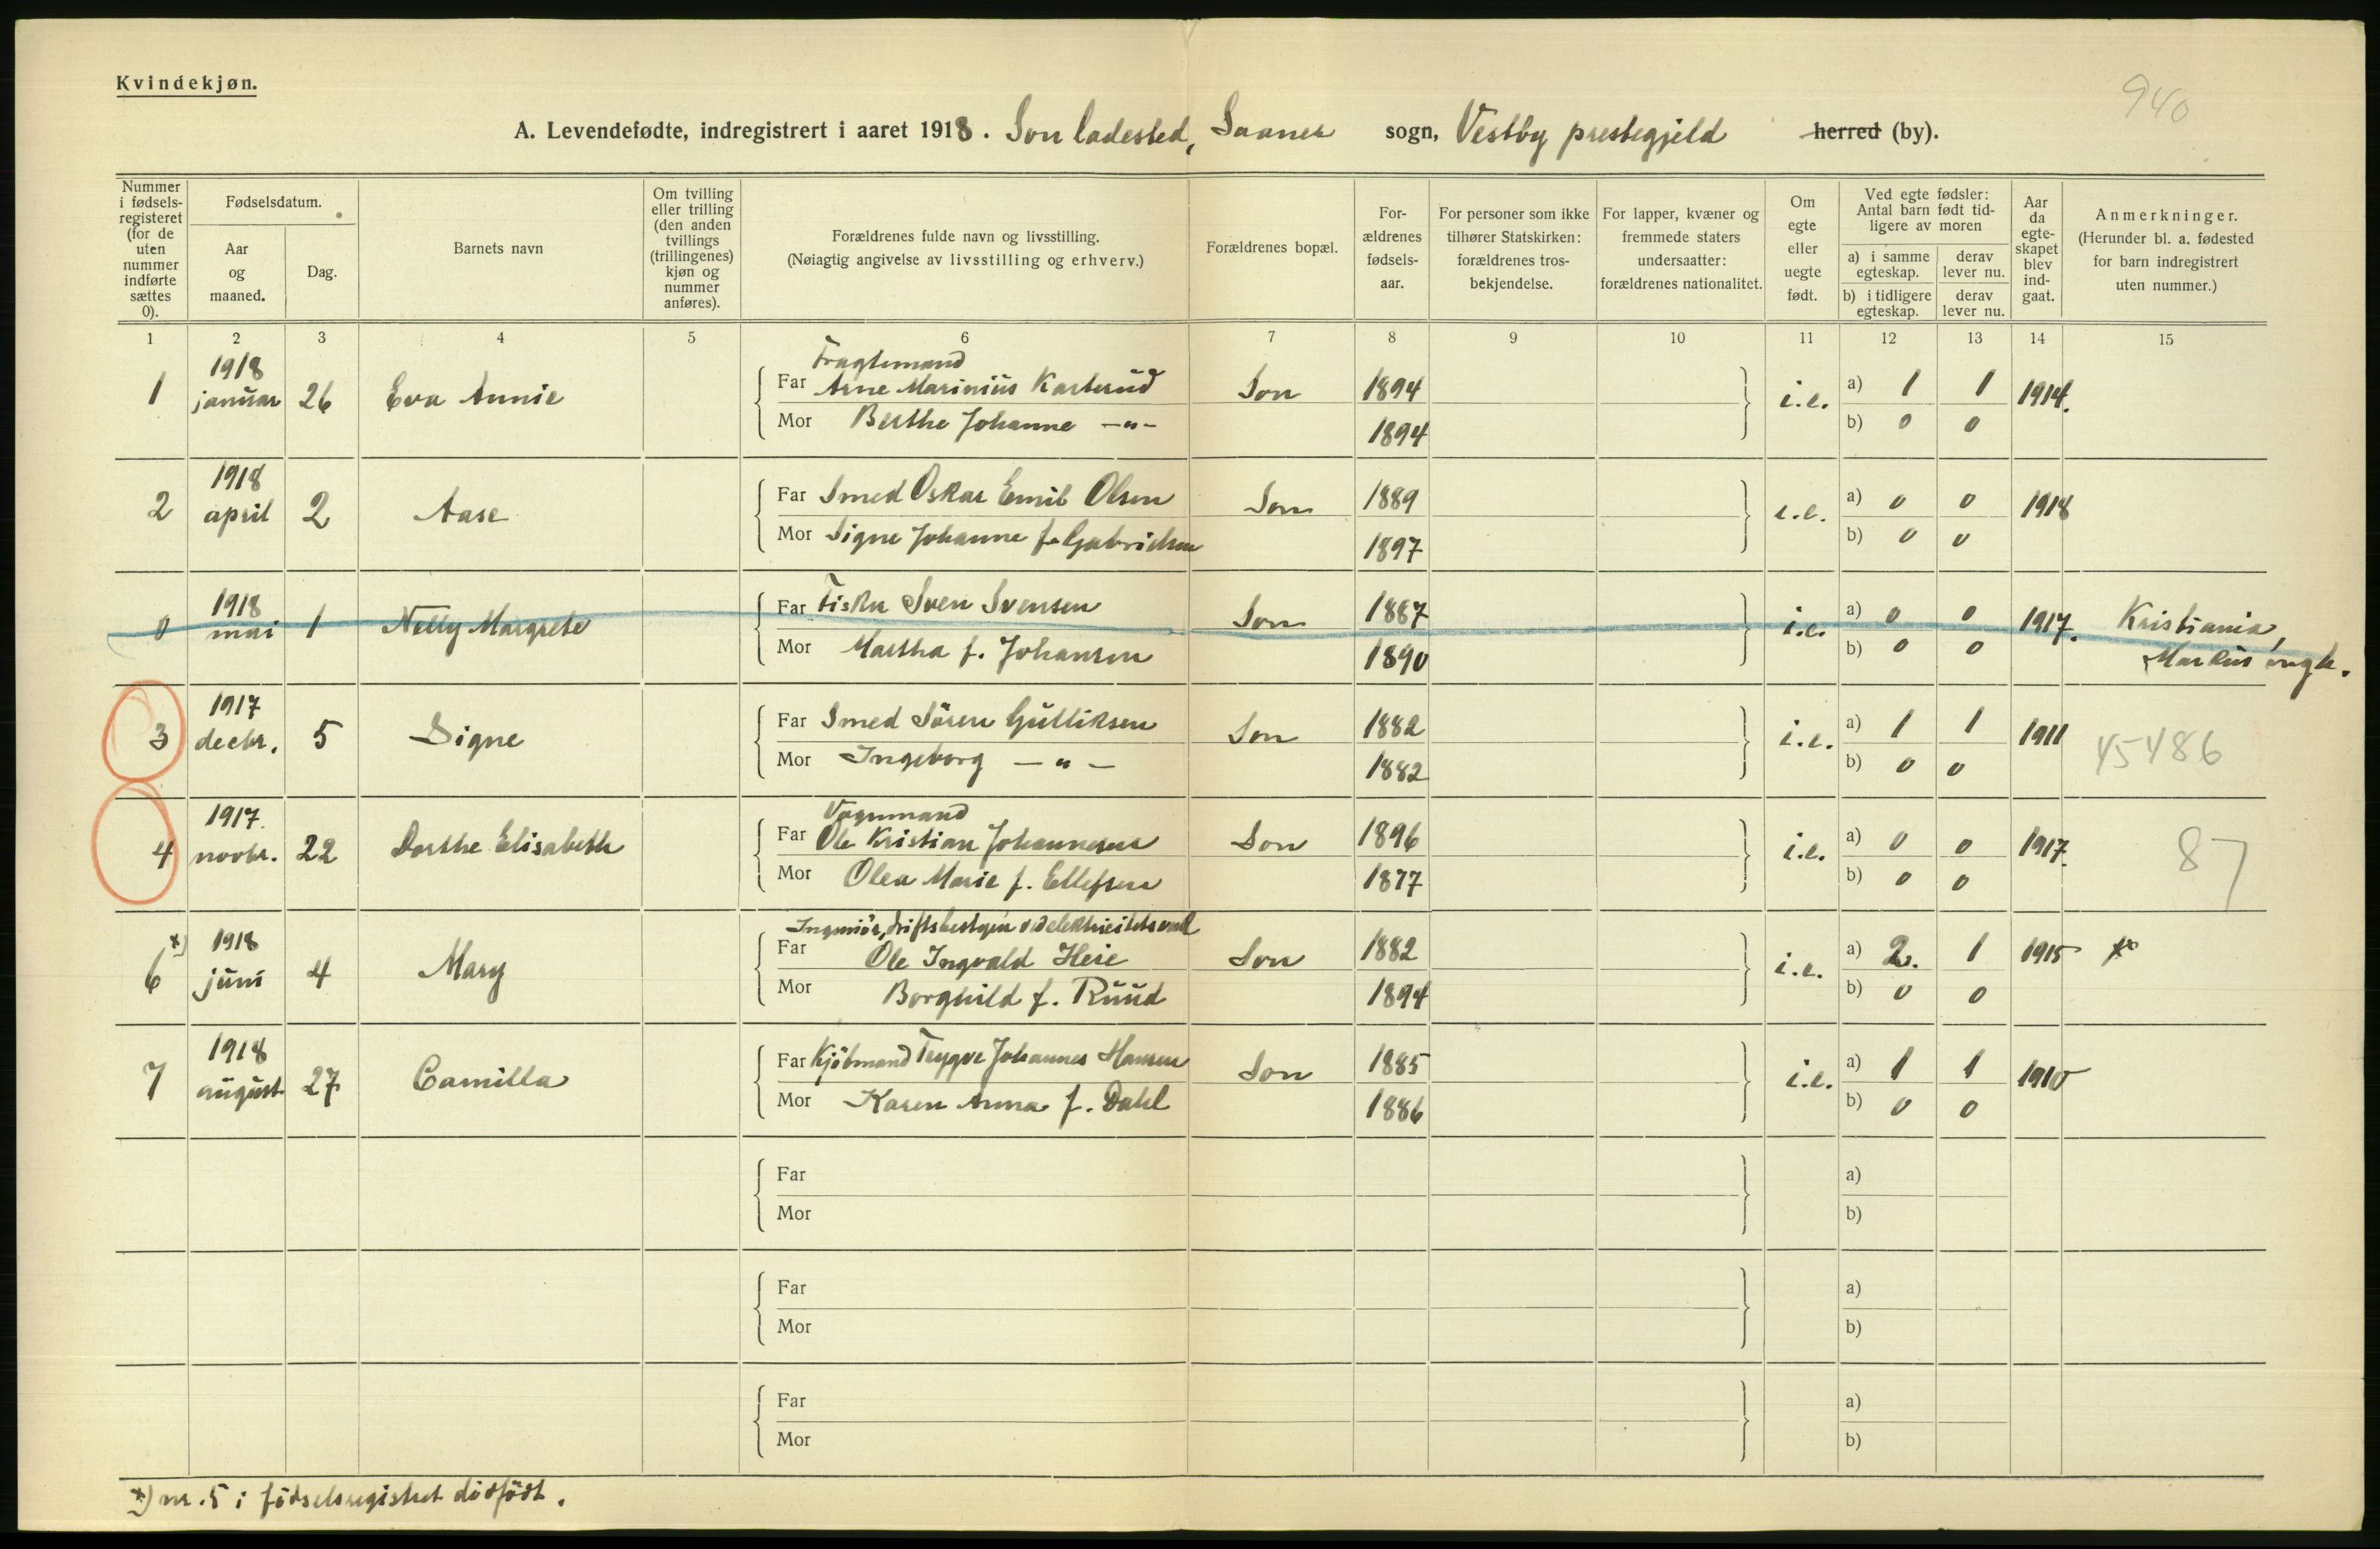 Kvindekjøn.
940
A. Levendefødte, indregistrert i aaret 1918. Son ladested, Saaner sogn, Vestby prestegjeld herred (by).
Nummer i fødsels-registeret (for de uten nummer indførte sættes 0).
Fødselsdatum.
Aar og maaned.
Dag.
Barnets navn
Om tvilling eller trilling (den anden tvillings (trillingenes) kjøn og nummer anføres).
Forældrenes fulde navn og livsstilling.
(Nøiagtig angivelse av livsstilling og erhverv.)
Forældrenes bopæl.
For-ældrenes fødsels-aar.
For personer som ikke tilhører Statskirken: forældrenes tros-bekjendelse.
For lapper, kvæner og fremmede staters undersaatter: forældrenes nationalitet.
Om egte eller uegte født.
Ved egte fødsler: Antal barn født tid-ligere av moren
a) i samme egteskap.
derav lever nu.
b) i tidligere egteskap.
derav lever nu.
Aar da egte-skapet blev ind-gaat.
Anmerkninger.
(Herunder bl. a. fødested for barn indregistrert uten nummer.)
1 2 3 4 5 6 7 8 9 10 11 12 13 14 15
1 1918 januar 26 Eva Annie Fragtemand
Far Arne Marinius Karterud Son 1894 i.e. a) 1 1 1914.
Mor Berthe Johanne —"— 1894 b) 0 0
2 1918 april 2 Aase Far Smed Oskar Emil Olsen Son 1889 i.e. a) 0 0 1918
Mor Signe Johanne f. Gabrielsen 1897 b) 0 0
0 1918 mai 1 Nelly Margrete Far Fisker Sven Svensen Son 1887 i.e. a) 0 0 1917. Kristiania,
Mor Martha f. Johansen 1890 b) 0 0 Markus mgh.
3 1917 decbr. 5 Signe Far Smed Sören Gulliksen Son 1882 i.e. a) 1 1 1911 45486
Mor Ingeborg —"— 1882 b) 0 0
4 1917. novbr. 22 Dorthe Elisabeth Vognmand
Far Ole Kristian Johannesen Son 1896 i.e. a) 0 0 1917. 87
Mor Olea Marie f. Ellefsen 1877 b) 0 0
6 *) 1918 juni 4 Mary Ingeniör, driftsbestyrer ved elektricitetsverk
Far Ole Ingvald Heie Son 1882 i.e. a) 2. 1 1915
Mor Borghild f. Ruud 1894 b) 0 0
7 1918 august 27 Camilla Far Kjöbmand Trygve Johannes Hansen Son 1885 i.e. a) 1 1 1910
Mor Karen Anna f. Dahl 1886 b) 0 0
Far a)
Mor b)
Far a)
Mor b)
Far a)
Mor b)
*) nr. 5 i födselsregistret dödfödt.